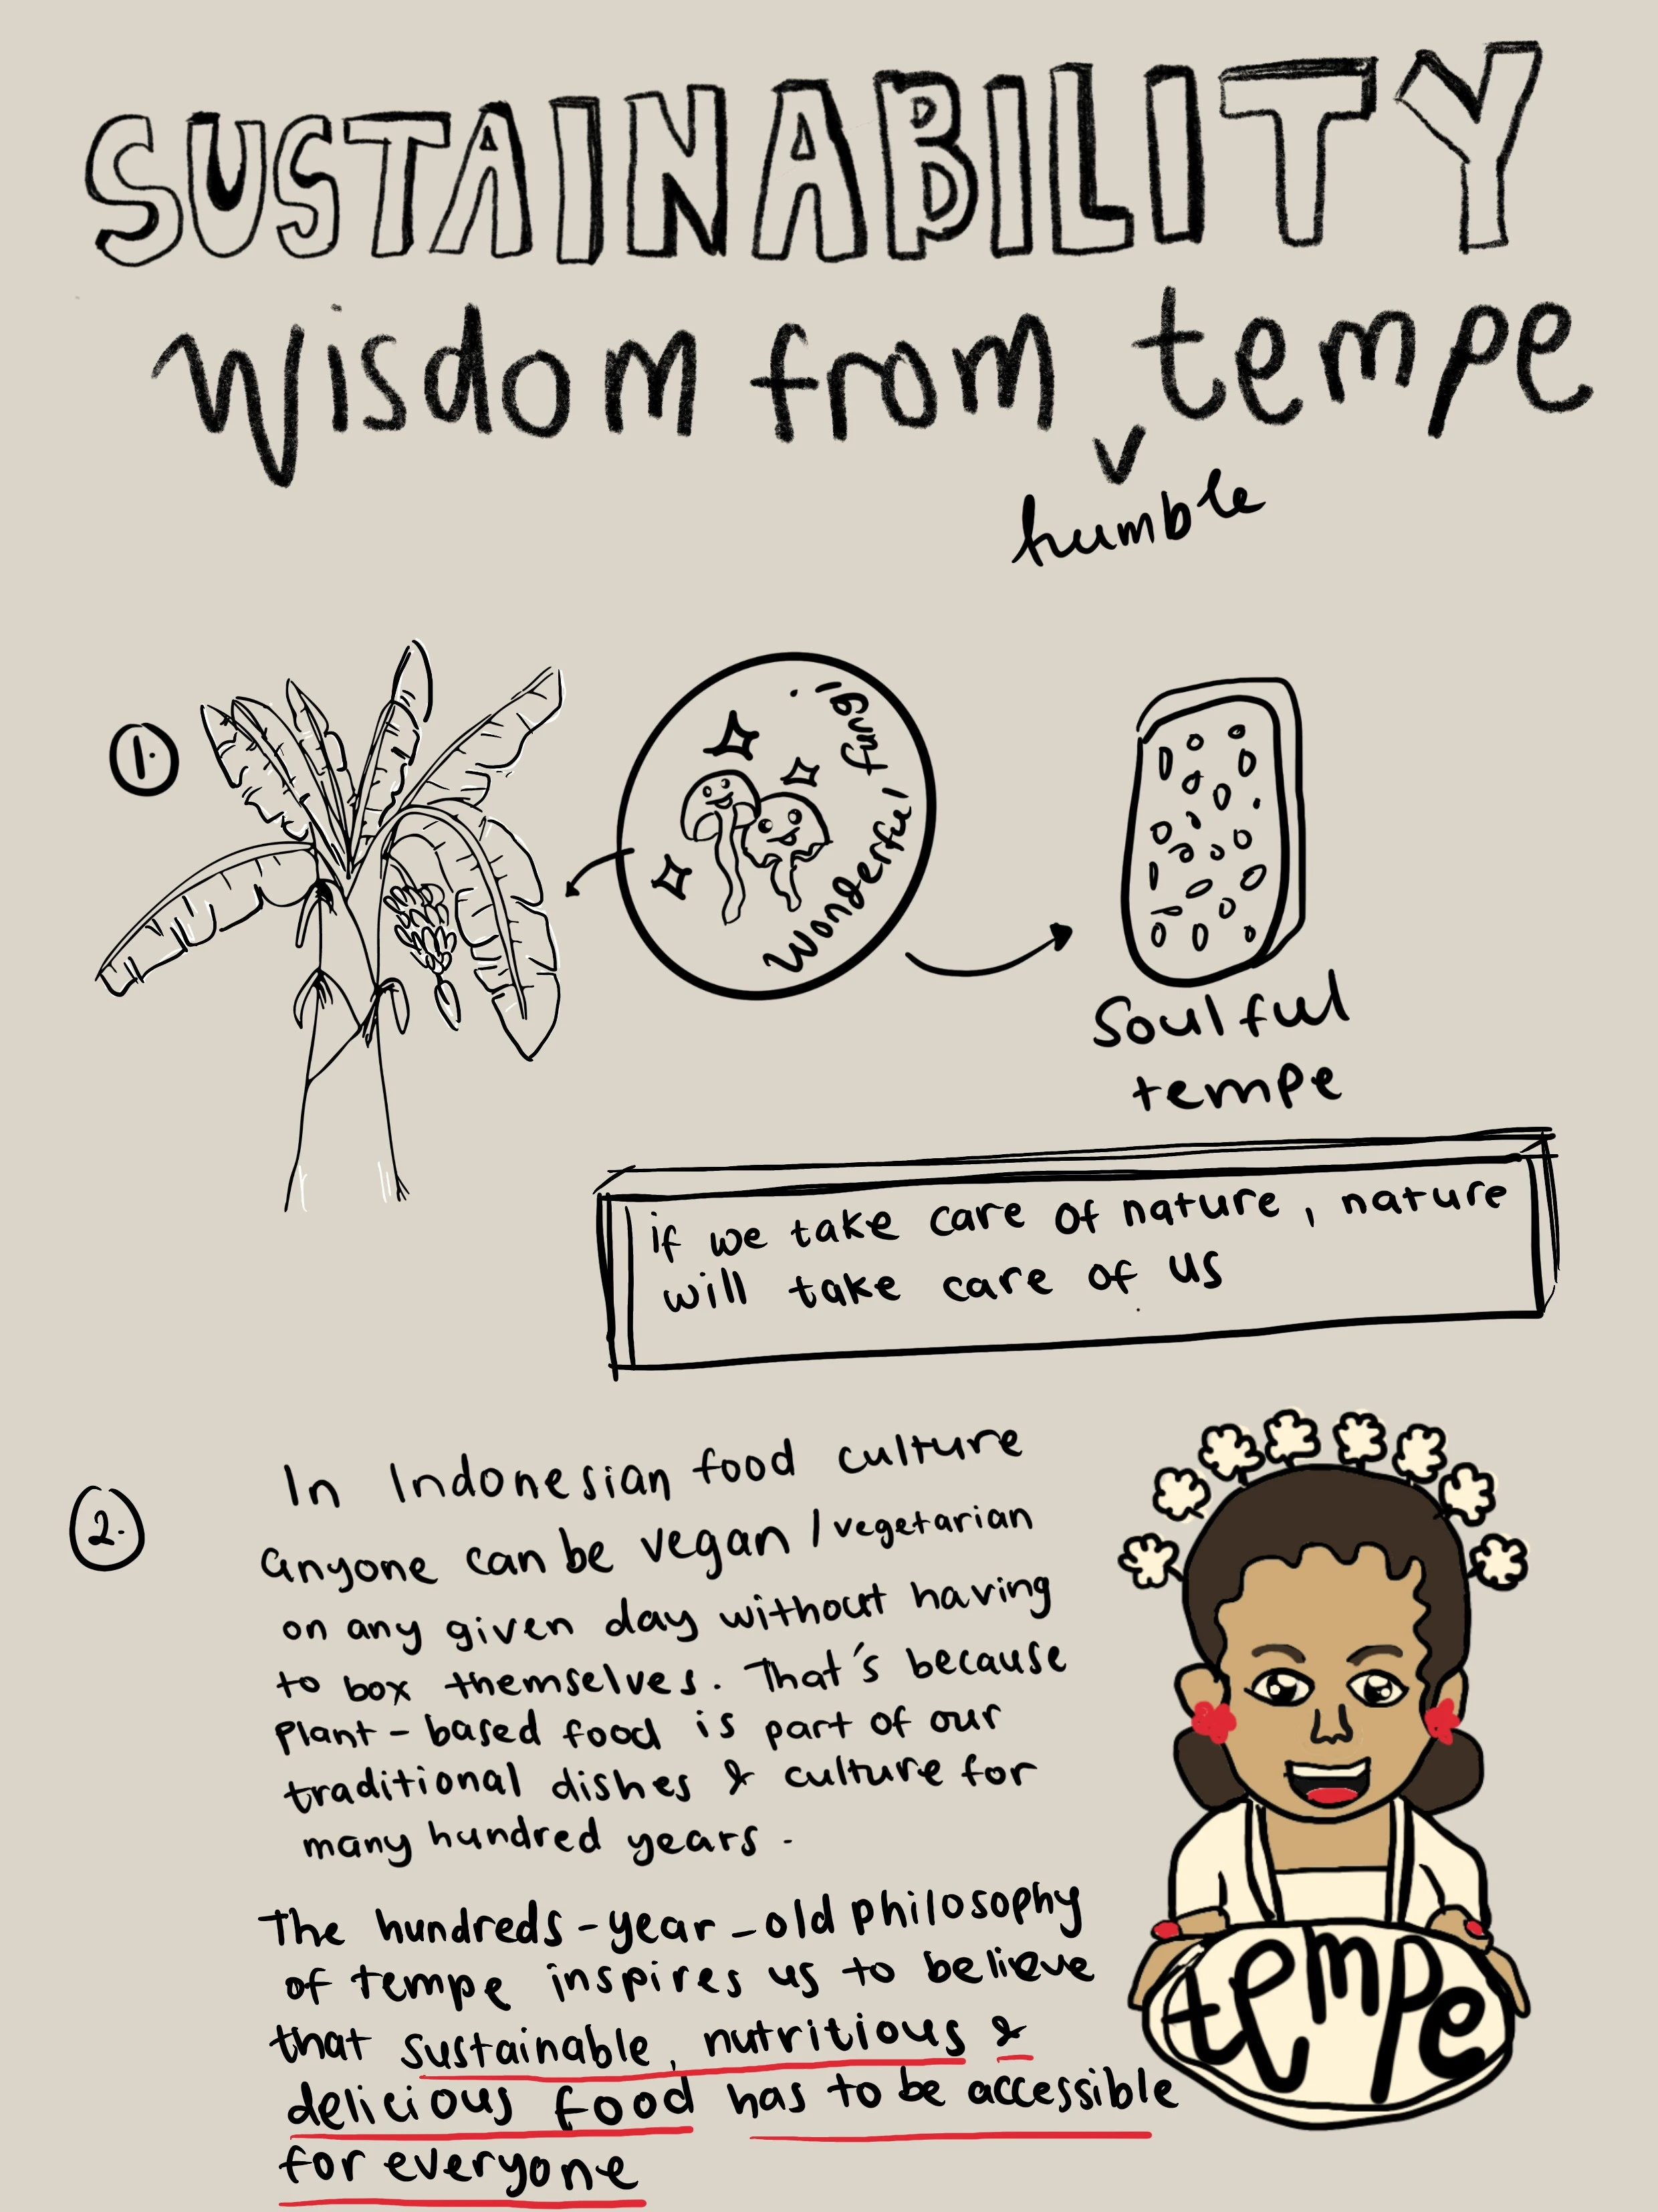 SUSTAINABILITY
Wisdom from tempe
humble
1.
Wonderful fungi
Soulful
tempe
if we take care of nature, nature
will take care of us
2.
In Indonesian food culture
anyone can be vegan / vegetarian
on any given day without having
to box themselves. That's because
plant-based food is part of our
traditional dishes & culture for
many hundred years.
The hundreds-year-old philosophy
of tempe inspires us to believe
that sustainable, nutritious &
delicious food has to be accessible
for everyone
tempe